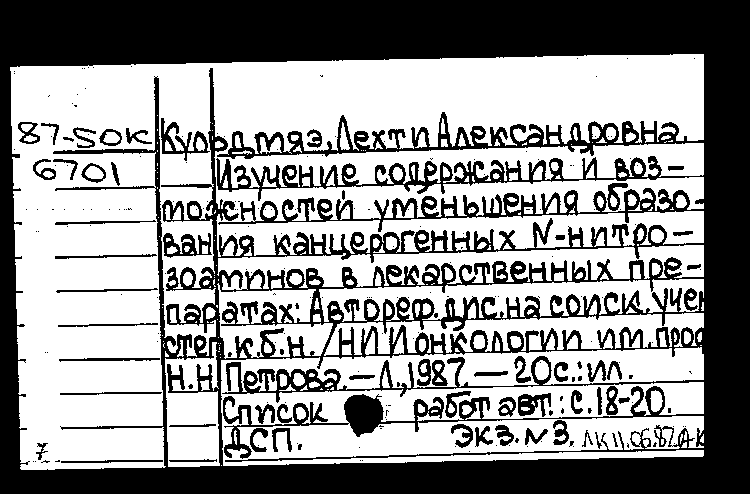 87-50К Кульдмяэ, Лехти Александровна.
6701 Изучение содержания и воз-
можностей уменьшения образо-
вания канцерогенных N-нитро-
зоаминов в лекарственных пре-
паратах: Автореф. дис. на соиск. учен
степ. к.б.н. / НИИ онкологии им. проф
Н.Н. Петрова. — Л., 1987. — 20с.: ил.
Список работ авт.: с. 18-20.
ДСП. Экз. N 3.
7